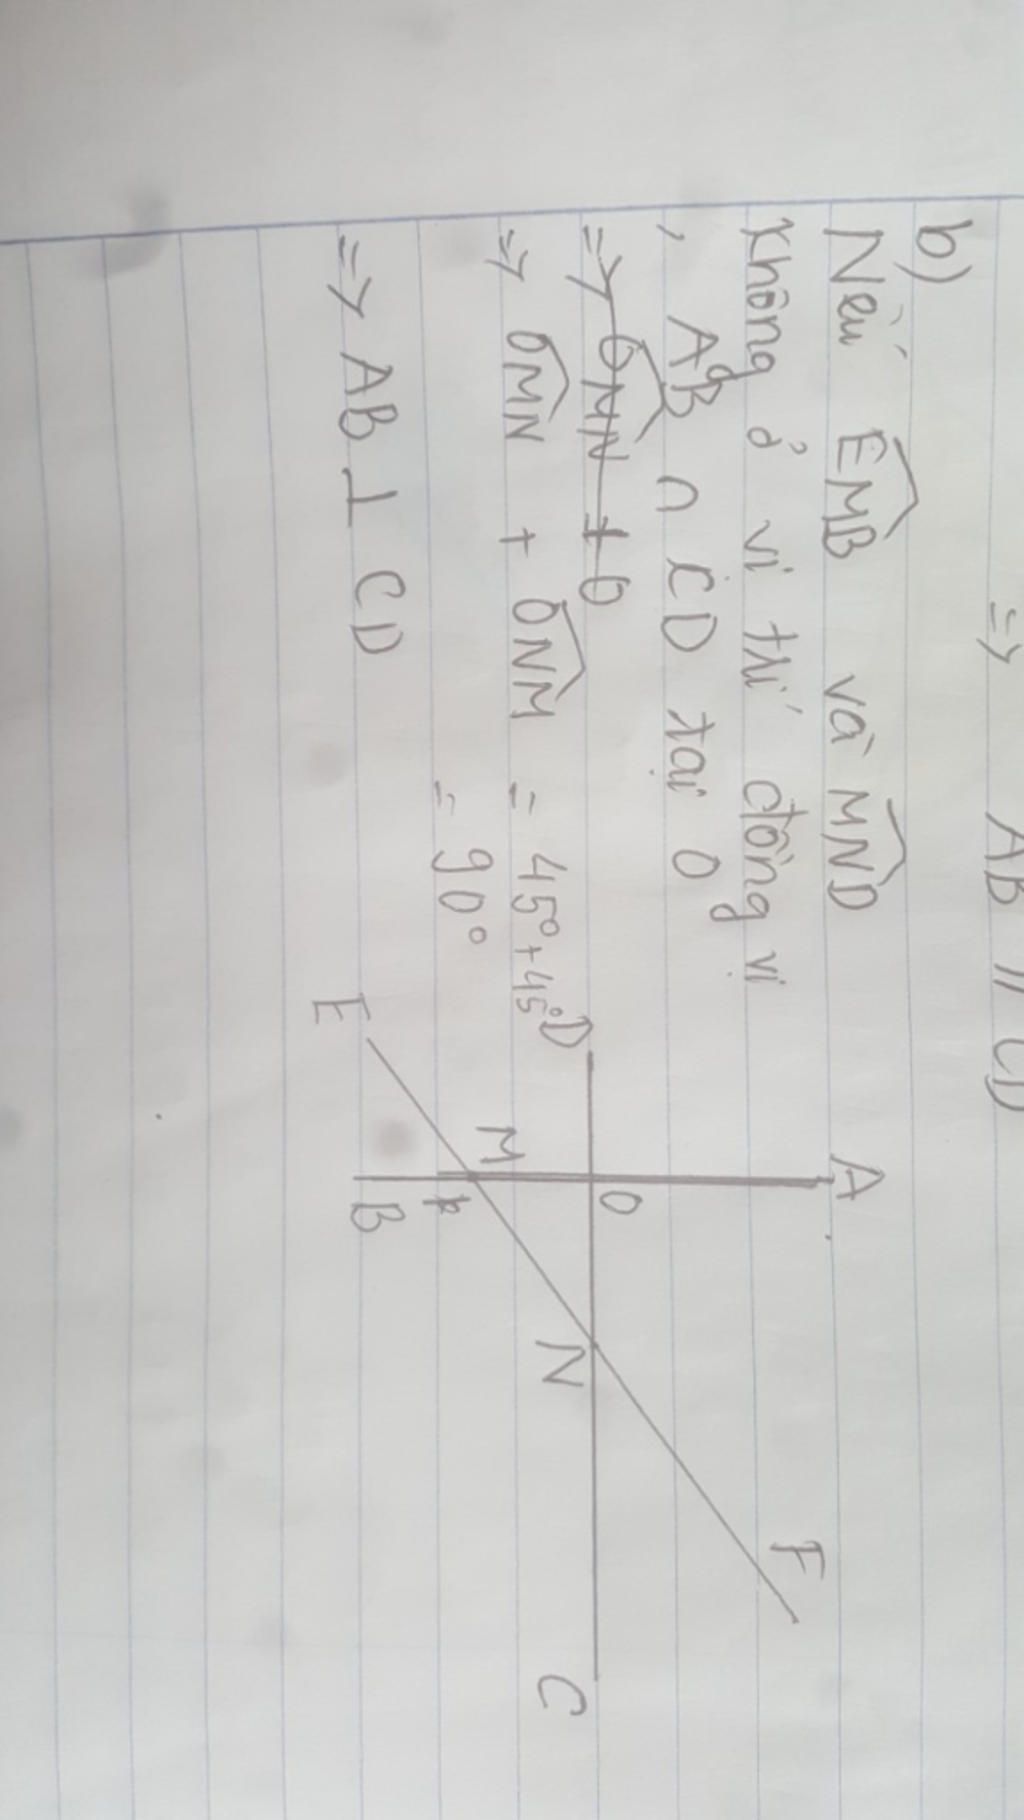 => AB // CD
b)
Nếu EMB và MND
không ở vi trí đồng vị
, AB ∩ CD tại O
=> OMN + O
=> OMN + ONM = 45° + 45°
= 90°
=> AB ⊥ CD
A
D O N C
M
B
E
F